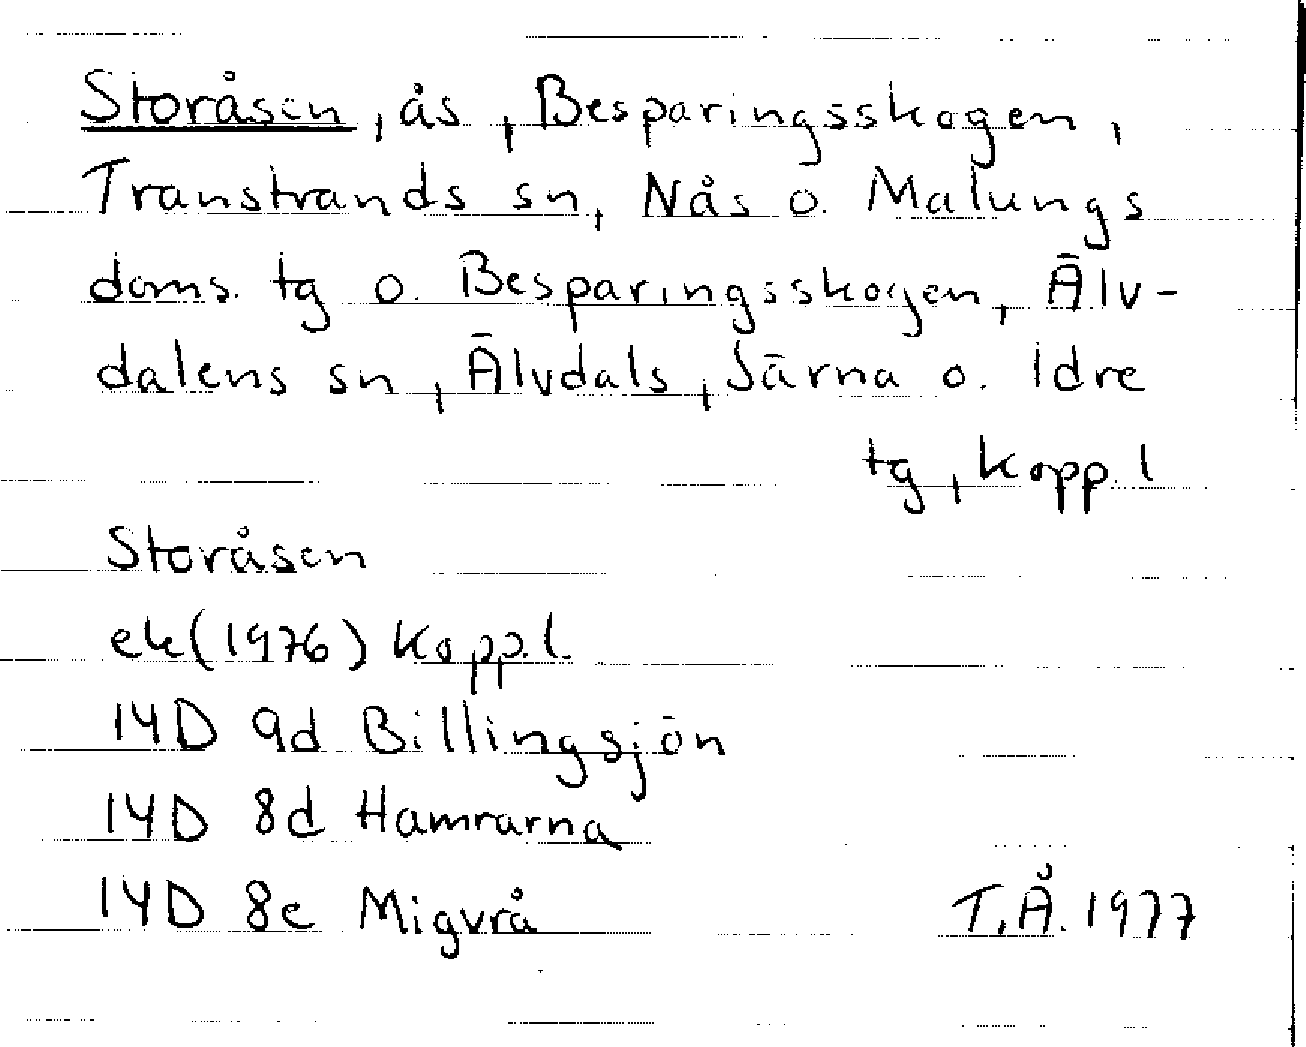 Storåsen, ås, Besparingsskogen,
Transtrands sn, Nås o. Malungs
doms. tg o. Besparingsskogen, Älv-
dalens sn, Älvdals, Särna o. Idre
tg, Kopp. l
Storåsen
ek (1976) Kopp. l.
14D 9d Billingsjön
14D 8d Hamrarna
14D 8e Migvrå
T.Å. 1977